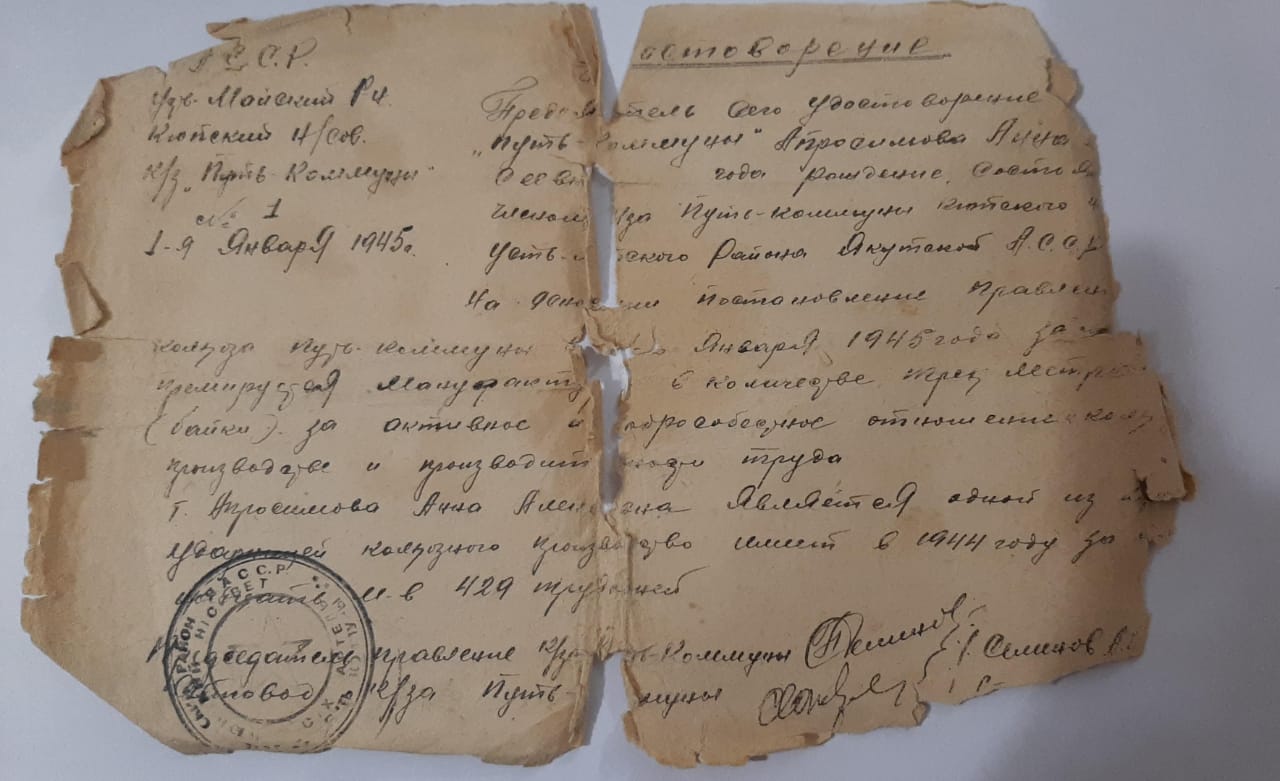 А С С.Р.
Усть-Майский Р-н.
Кюпский н/сов.
к/з „Путь-Коммуны"
№ 1
1-я Января 1945г.
остоворение
Предъя тель Сего удостоворение
„Путь-Коммуны" Апросимова Анна
года рождение, состоя
членом к/за Путь-коммуны Кюпского н
Усть- ского Района Якутской А.С.С.
На основании постановление Правлен
колхоза Путь-коммуны Января 1945 года за
премируется Мануфакту в количестве трех метр
(байки). за активное и обросовестное отношение к колх
производстве и производит ности труда
т. Апросимова Анна Алек на является одной из
ударницей колхозного производство имеет в 1944 году за
м-в 429 трудодней
Председатель правление к/за ть-Коммуны Семенов
Счетовод к/за Путь- муны
САССР
РАЙОН
Н/СОВЕТ